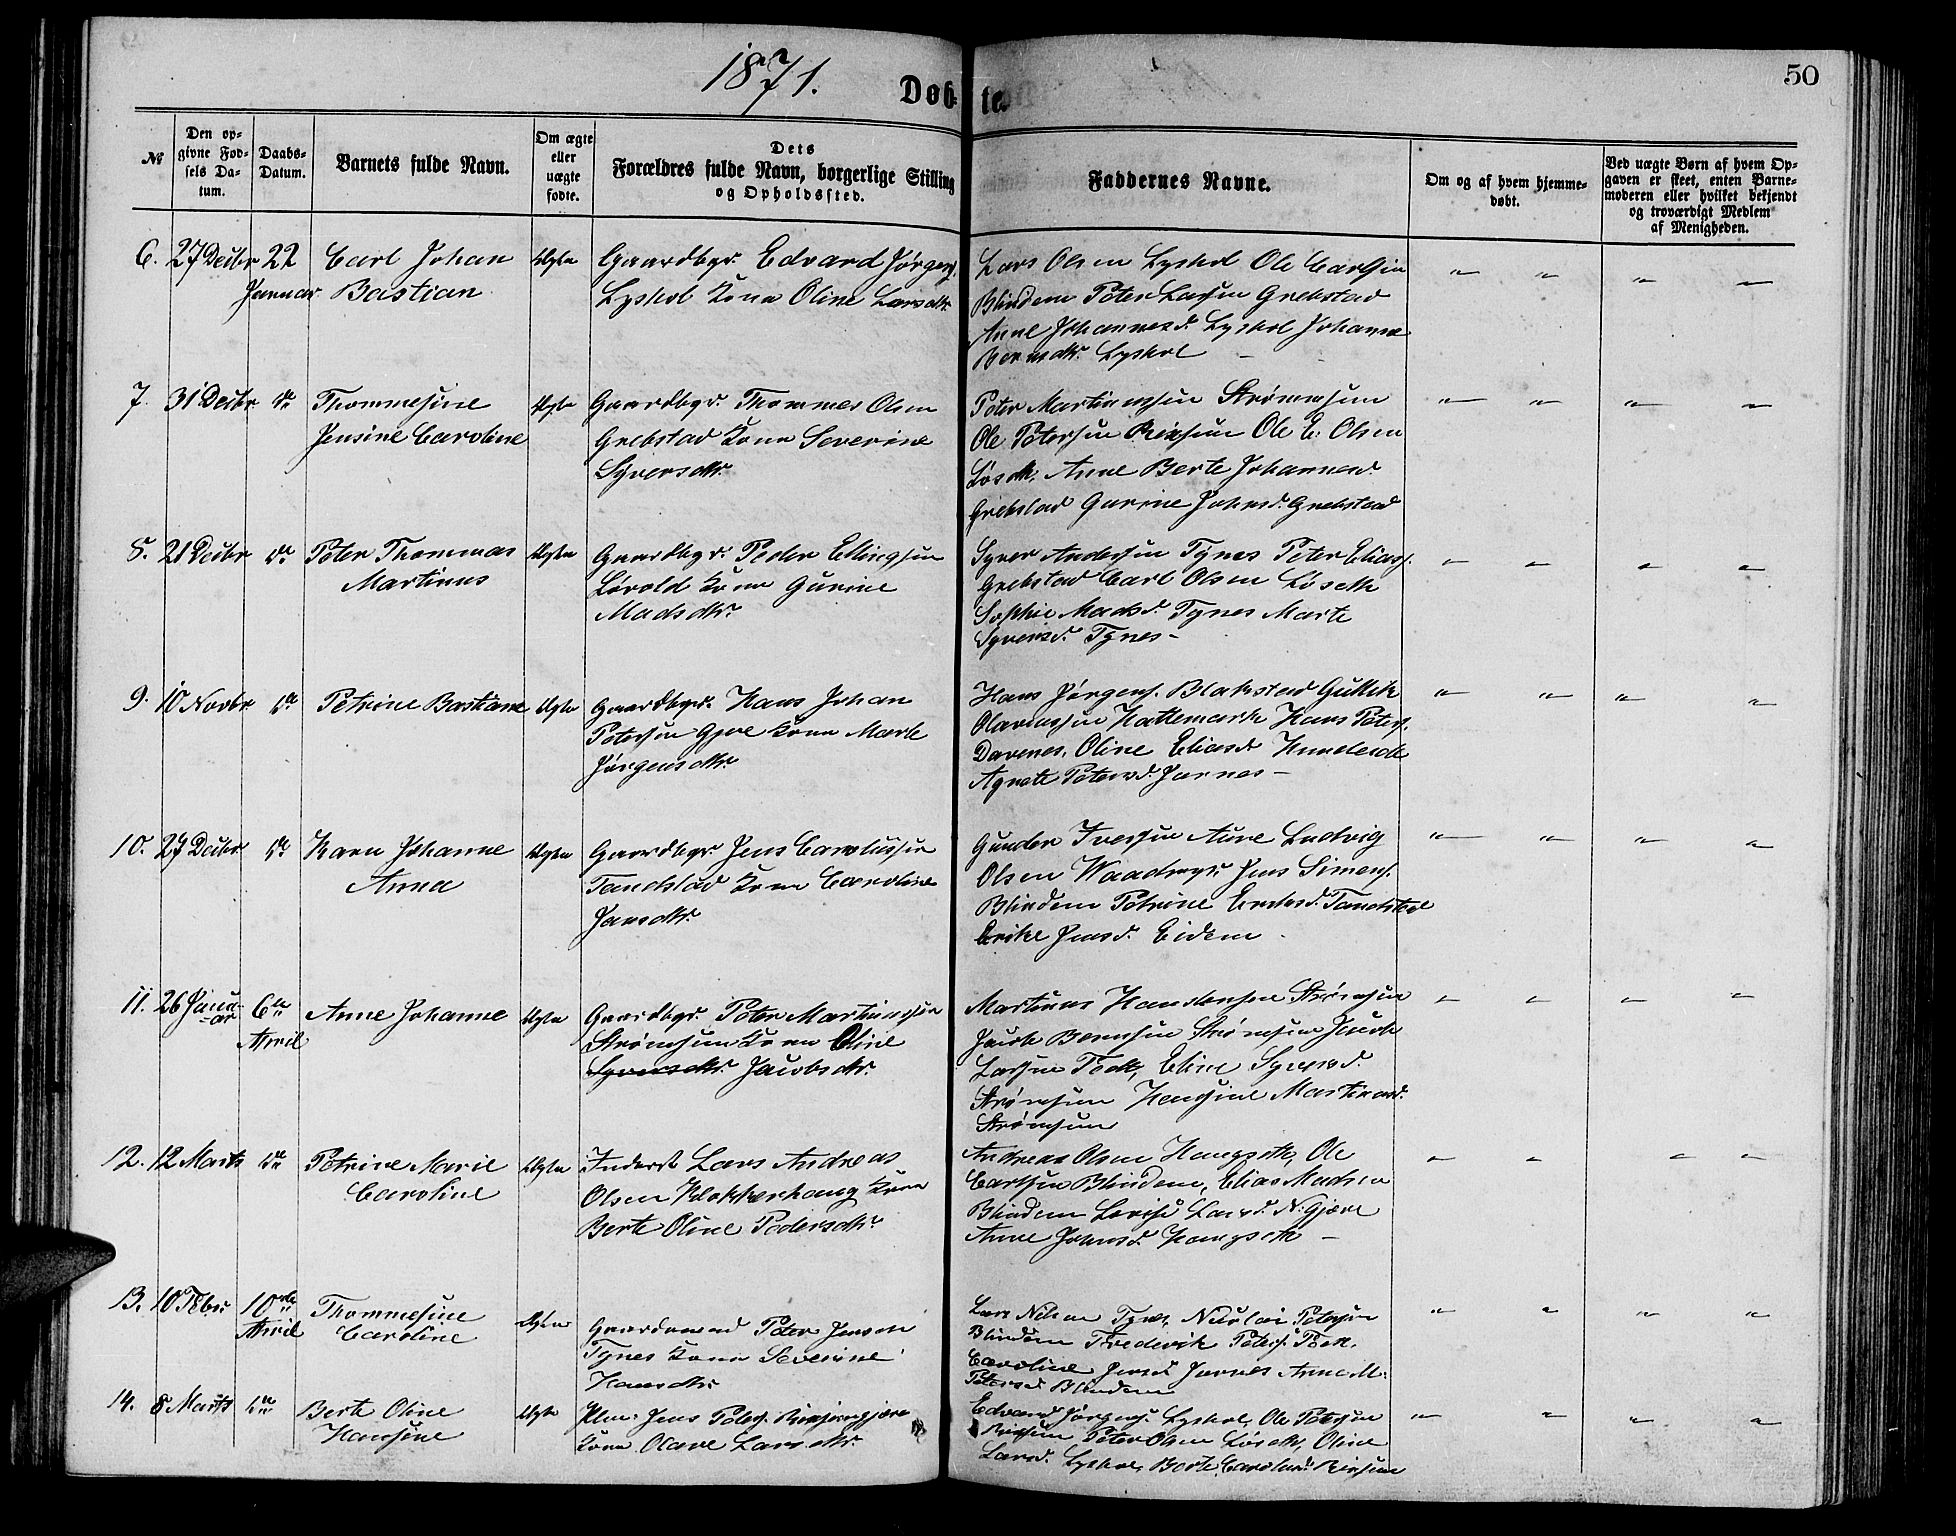 1871.
Døbte.
50
№
Den opgivne Fødsels Datum.
Daabs-Datum.
Barnets fulde Navn.
Om ægte eller uægte fødte.
Dets Forældres fulde Navn, borgerlige Stilling og Opholdssted.
Faddernes Navne.
Om og af hvem hjemmedøbt.
Ved uægte Børn af hvem Opgaven er skeet, enten Barnemoderen eller hvilket bekjendt og troværdigt Medlem af Menigheden.
6. 27 Decbr 22 Carl Johan Ægte Gaardbgr. Edvard Jørgens.
Januar Bastian Lyshol Kona Oline Larsdtr.
Lars Olsen Lyshol Ole Carlsen
Blindem Peter Larsen Grebstad
Anne Johannesd. Lyshol Johanne
Berns dtr. Lyshol -
7. 31 Decbr. do Thommesine Ægte Gaardbgr. Thommes Olsen
Jensine Caroline Grebstad Kona Severine
Syversdtr.
Peter Martinussen Strømsem
Ole Petersen Riksem Ole E. Olsen
Løseth, Anne Berte Johannesd.
Grebstad Gurine Johnsd. Grebstad
8. 21 Decbr do Peter Thommas Ægte Gaardbgr. Peder Ellingsen
Martinus Løvold Kona Gurine
Madsdtr.
Syver Andersen Tynes Peter Elias.
Grebstad Carl Olsen Løseth
Sophie Madsd. Tynes Marte
Syversd. Tynes -
9. 10 Novbr do Petrine Bastiane Ægte Gaardbgr. Hans Johan
Petersen Gjere Kona Marte
Jørgensdtr.
Hans Jørgens. Blakstad Gullik
Olariussen Hattemark Hans Peters.
Davenes, Oline Eliasd. Humleside
Agnete Petersd. Jarnes -
10. 27 Decbr do Karen Johanne Ægte Gaardbgr. Jens Carolussen
Anna Tandstad Kona Caroline
Jansdtr.
Gunder Iversen Aure Ludvig
Olsen Waadmyr. Jens Simens.
Blindem Petrine Tandstad
Erike Jensd. Eidem -
11. 26 Januar 6te April Anne Johanne Ægte Gaardbgr. Peter Martinussen
Strømsem Kona Oline
Syversdtr. Jacobsdtr.
Martinus Strømsem
Jacob Bernsen Strømsem Jacob
Larsen Foth, Eline Syversd.
Strømsem Hansine Martinusd.
Strømsem
12. 12 Marts do Petrine Marie Ægte Inderst Lars Andreas
Caroline Olsen Klokkerhaug Kona
Berte Oline Pedersdtr.
Andreas Olsen Haugseth, Ole
Carlsen Blindem, Elias Madsen
Blindem Lovise Larsd. N. Gjære
Anne Johnsd. Haugseth -
13. 10 Febr. 10de April Thommesine Ægte Gaardmand Peter Jensen
Caroline Tynes Kona Severine
Hansdtr.
Lars Nilsen Tynes, Nicolai Petersen
Blindem Frederik Peters. Foth.
Caroline Jensd. Jarnes Anne M.
Petersd. Blindem
14. 8 Marts do Berte Oline Ægte Jens Peters.
Hansine Kona Olave Larsdtr.
Edvard Jørgens. Lyshol, Ole Petersen
Riksem Peter Olsen Løseth, Oline
Larsd. Lyshol, Berte Riksem